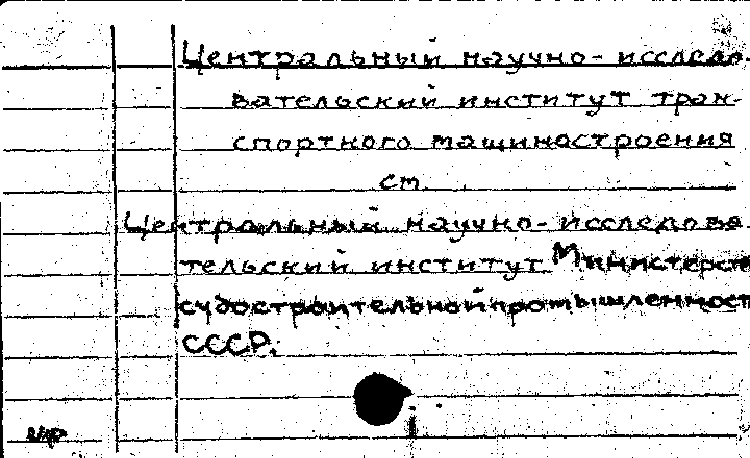 Центральный научно-исследо-
вательский институт тран-
спортного машиностроения
см.
Центральный научно-исследова-
тельский институт Министерств
судостроительной промышленност
СССР.